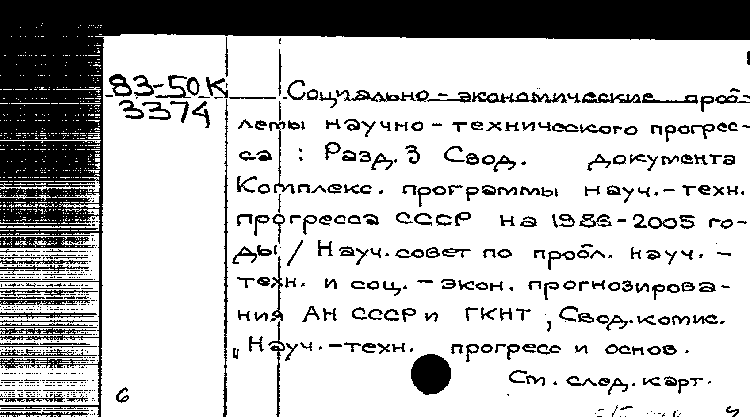 83-50К
3374
Социально-экономические проб-
лемы научно-технического прогрес-
са : Разд. 3 Свод. документа
Комплекс. программы науч.-техн.
прогресса СССР на 1986-2005 го-
ды / Науч. совет по пробл. науч.-
техн. и соц.-экон. прогнозирова-
ния АН СССР и ГКНТ, Свод. комис.
„Науч.-техн. прогресс и основ.
См. след. карт.
6